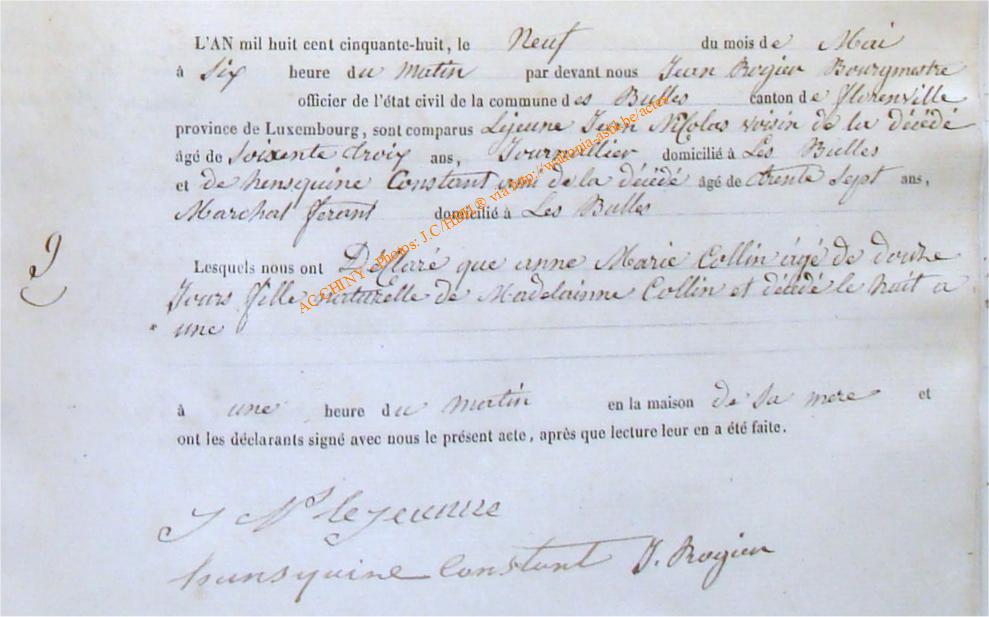 L'AN mil huit cent cinquante-huit, le Neuf du mois de Mai
à Six heure du Matin par devant nous Jean Rogier Bourgmestre
officier de l'état civil de la commune des Bulles canton de florenville
province de Luxembourg, sont comparus Lejeune Jean Nicolas voisin de la décédé
âgé de Soixente troix ans, Journallier domicilié à Les Bulles
et de hensquine Constant ami de la décédé âgé de trente Sept ans,
Marchal ferant domicilié à Les Bulles
9
Lesquels nous ont Déclaré que anne Marie Collin âgé de douze
Jours fille naturelle de Madelainne Collin et décédé le huit a
une
à une heure du matin en la maison de Sa mere et
ont les déclarants signé avec nous le présent acte, après que lecture leur en a été faite.
J Ns lejeunne
hensquine Constant J. Rogier
AC CHINY - Photos: J.C/HBN® via http://wallonia-asbl.be/actes